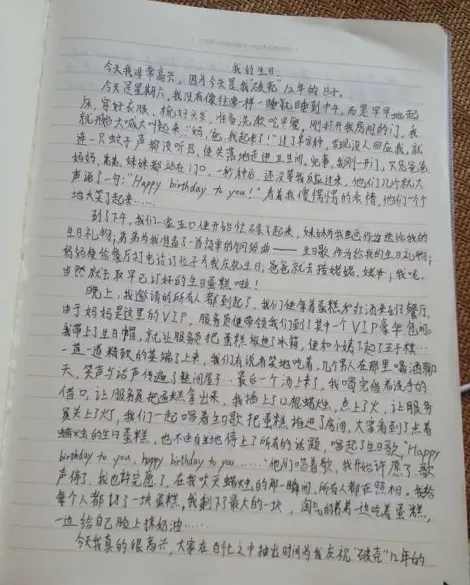 我的生日
今天我非常高兴，因为今天是我"破壳"12年的日子。
今天是星期六，我没有像往常一样一睡就睡到中午，而是早早地起
床，穿好衣服，梳好头发，准备洗漱吃早餐，刚打开我房间的门，我
就开始大喊大叫起来："妈，爸，我起来了！"过了某分钟，发现没人回应我，就
连一只蚊子声都没听見，便失落地走进卫生间，完事，我刚一开门，只见爸爸
妈妈，妹妹都站在门口，一秒钟后，还没等我反应过来，他们几个就大
声说了一句："Happy birthday to you！"看着我傻愣愣的表情，他们一个个
地大笑了起来。
到了下午，我们一家五口便开始忙碌了起来，妹妹为我画画作为送给我的
生日礼物；弟弟为我准备了一首简单的钢琴曲——生日歌，作为给我的生日礼物；
妈妈便给餐厅打电话订位子为我庆祝生日；爸爸就去接姥姥，姥爷；我呢，
当然就去取早已订好的生日蛋糕啦！
晚上，我邀请的所有人都到起了，我们便拿着蛋糕和红酒来到了餐厅，
由于妈妈是这里的VIP，服务员便带领我们到了其中一个VIP豪华包间。
我带上了生日帽，就让服务员把蛋糕放进了冰箱，便和小姨下起了五子棋…
一道一道精致的菜端了上来，我们有说有笑地吃着，几个男人在那里喝酒聊
天，笑声与话声传遍了整间屋子…最后一个汤上来了，我喝完借着洗手的
借口，让服务员把蛋糕拿出来，我插上了12根蜡烛，点上了火，让服务
员关上了灯，我们一起唱着生日歌把蛋糕推进了房间，大家看到了点着
蜡烛的生日蛋糕，也不由自主地停上了所有的话题，唱起了生日歌，"Happy
birthday to you, happy birthday to you……"他们唱着歌，我开始许愿了，歌
声停了，我也许完愿了，在我吹灭蜡烛的那一瞬间，所有人都在照相。我给
每个人都切了一块蛋糕，我剩下了最大的一块，淘气的看着一边吃着蛋糕，
一边给自己脸上抹奶油……
今天我真的很高兴，大家在百忙之中抽出时间为我庆祝"破壳"12年的